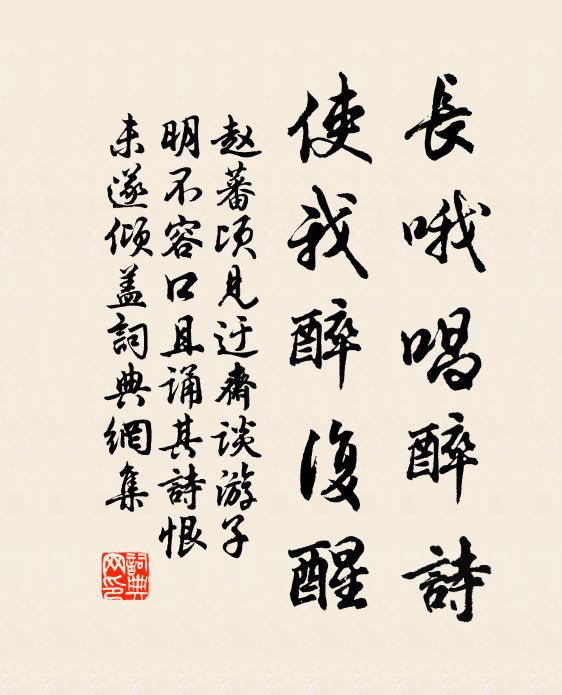 長哦唱醉詩
使我醉復醒
赵蕃頃見迂齋談游子
明不容口且诵其詩恨
未遂傾盖詞典網集
詞典網印